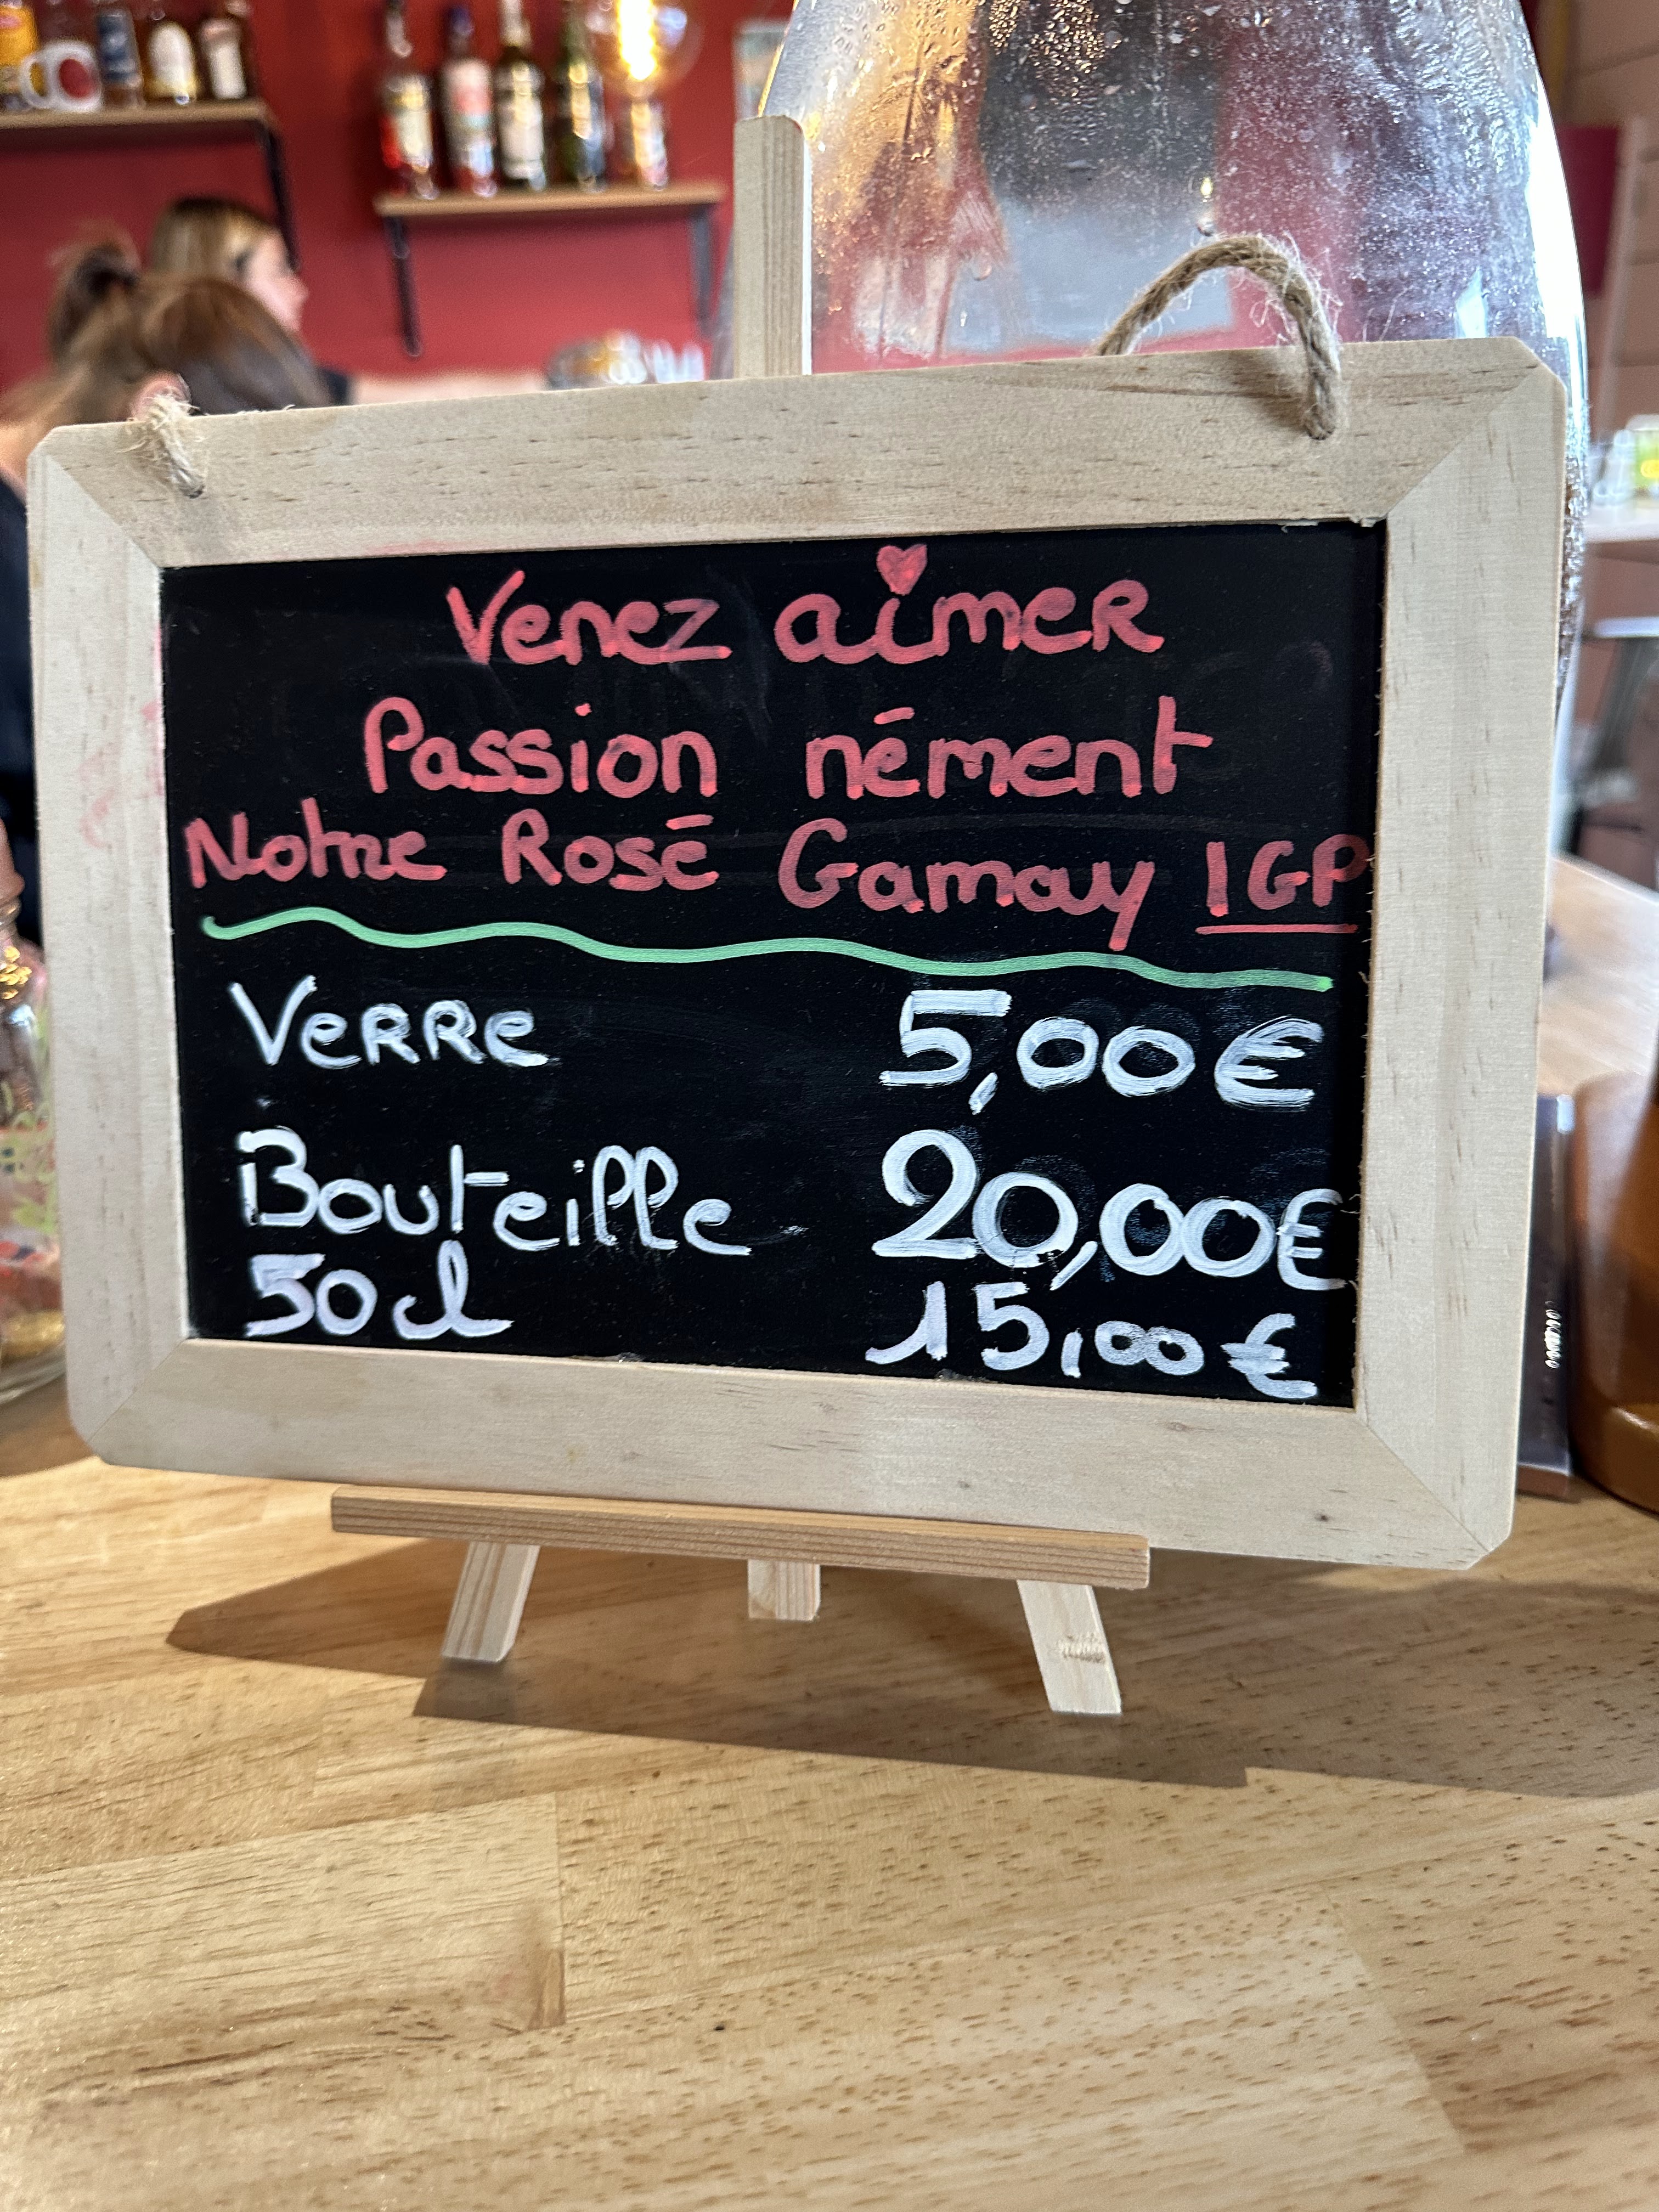 Venez aimer
Passion nément
Notre Rosé Gamay IGP
Verre 5,00€
Bouteille 20,00€
50cl 15,00€